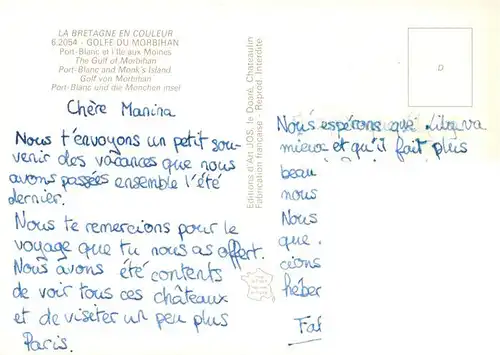 LA BRETAGNE EN COULEUR
6.2054 - GOLFE DU MORBIHAN
Port-Blanc et l'Ile aux Moines
The Gulf of Morbihan
Port-Blanc and Monk's Island
Golf von Morbihan
Port-Blanc und die Mönchen insel
Chère Manina
Nous t'envoyons un petit sou-
venir des vacances que nous
avons passées ensemble l'été
dernier.
Nous te remercions pour le
voyage que tu nous as offert.
Nous avons été contents
de voir tous ces châteaux
et de visiter un peu plus
Paris.
Editions d'Art JOS, le Doaré, Chateaulin
Fabrication française - Reprod. Interdite
D
Nous espérons que va
mieux et qu'il fait plus
beau
nous
Nous
que
cions
héber